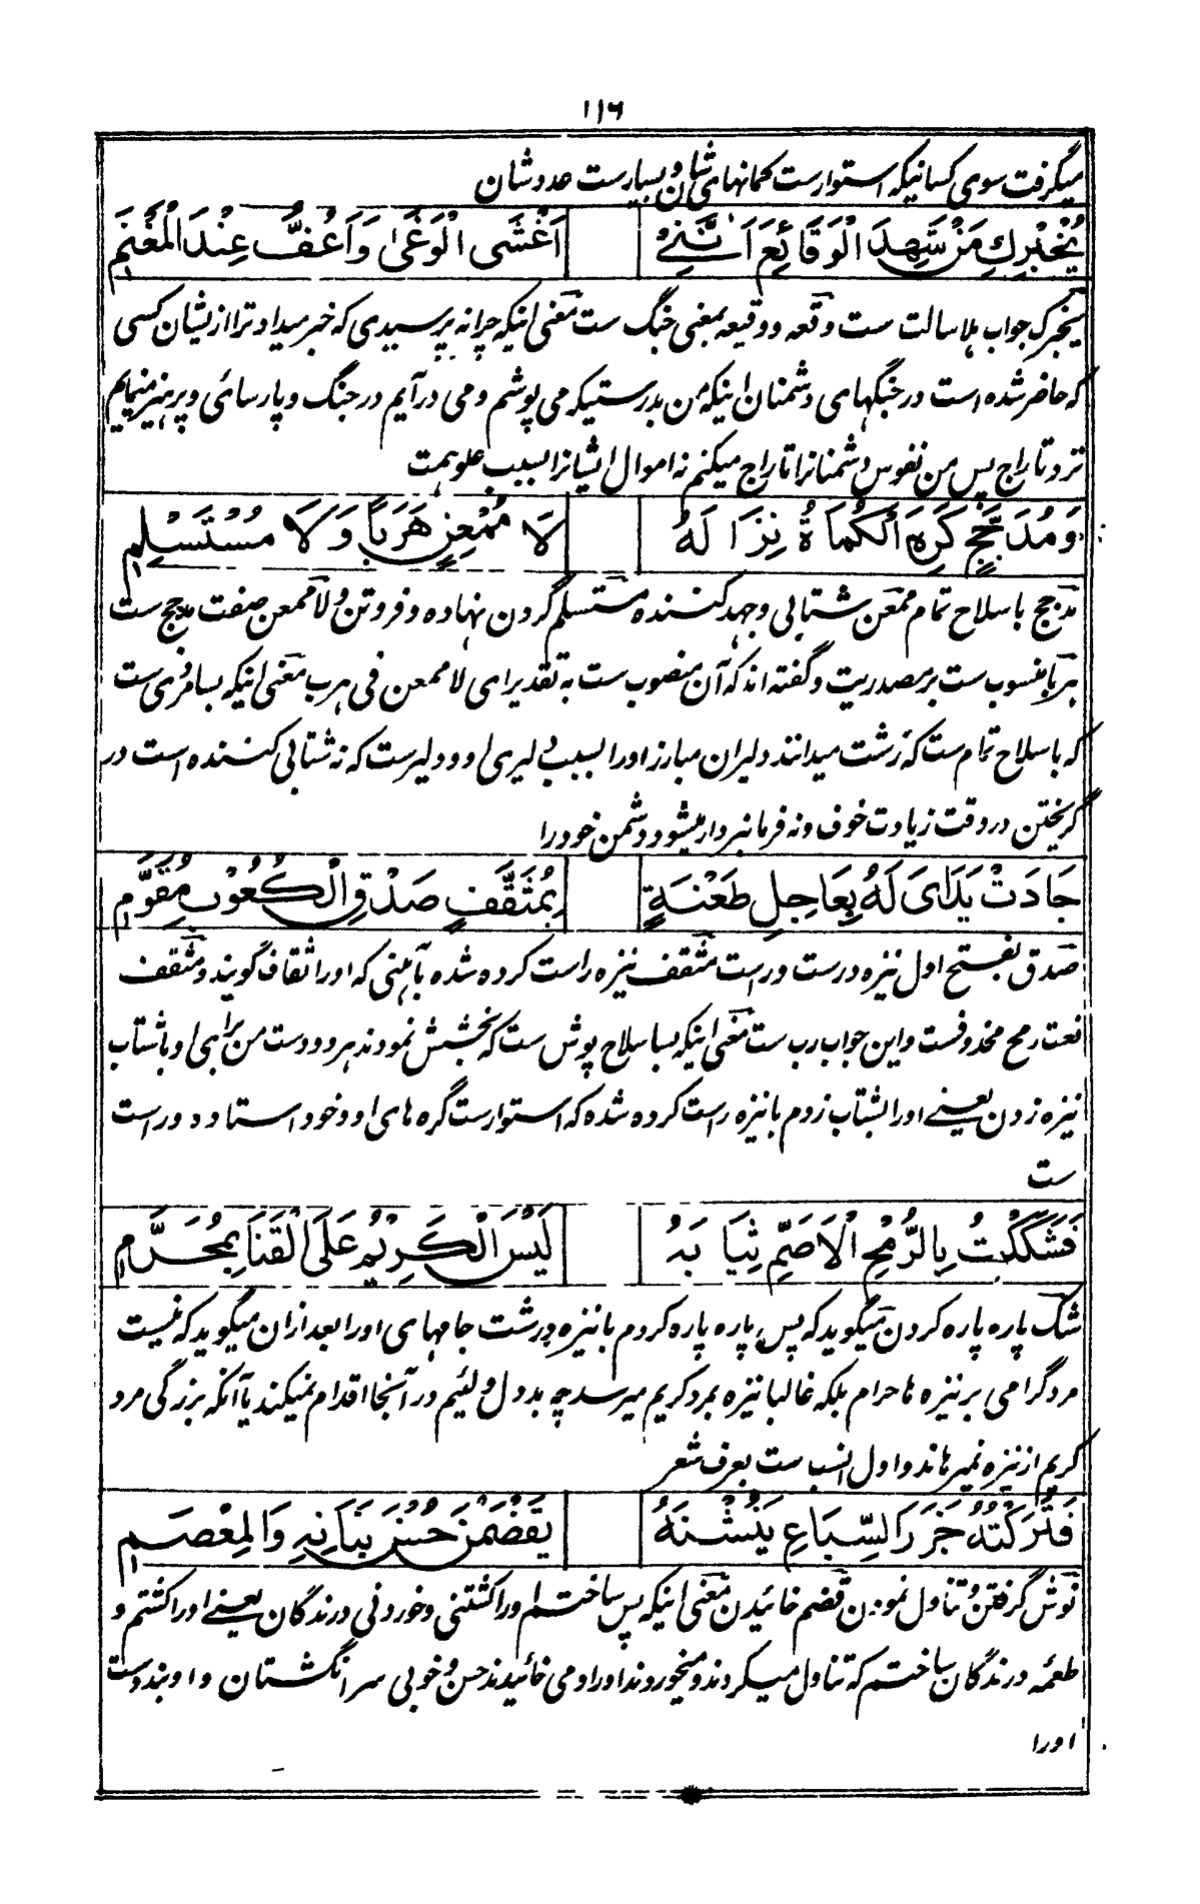 ۱۱۶
میگرفت سوی کسانیکه استوارست کمانهای شان و بسیارست عدد شان
يُخْبِرْكِ مَنْ شَهِدَ الْوَقَائِعَ اَنَّنِيْ اَغْشَى الْوَغٰى وَاَعُفُّ عِنْدَ الْمَغْنَمِ
یخبرک جواب هلا سالت ست وقعه و وقیعه بمعنی جنگ ست معنی اینکه چرا نه پرسیدی که خبر میداد ترا ازیشان کسی
که حاضر شده است در جنگهای دشمنان اینکه من بدرستیکه می پوشم و می درآیم در جنگ و پارسائی و پرهیز مینمایم
نزد تاراج پس من نفوس دشمنانرا تاراج میکنم نه اموال ایشانرا بسبب علو همت
وَمُدَجَّجٍ كَرِهَ الْكُمَاةُ نِزَالَهُ لَا مُمْعِنٍ هَرَبًا وَلَا مُسْتَسْلِمِ
مدجج با سلاح تمام ممعن شتابی و جهد کننده مستسلم گردن نهاده و فروتن و لا ممعن صفت مدجج ست
هربا منسوب ست بر مصدریت و گفته اند که آن منصوب ست به تقدیر ای لا ممعن فی هرب معنی اینکه بسا مردی ست
که با سلاح تمام ست که زشت میدانند دلیران مبارز او را بسبب دلیری او و دلیرست که نه شتابی کننده است در
گریختن در وقت زیادت خوف و نه فرمانبردار میشود دشمن خود را
جَادَتْ يَدَايَ لَهُ بِعَاجِلِ طَعْنَةٍ بِمُثَقَّفٍ صَدْقِ الْكُعُوْبِ مُقَوَّمِ
صدق بفتح اول نیزه درست و راست مثقف نیزه راست کرده شده بآهنی که او را ثقاف گویند و مثقف
نعت رمح محذوفست و این جواب رب ست معنی اینکه بسا سلاح پوش ست که بخشش نمودند هر دو دست من برای او باشتاب
نیزه زدن یعنے او را بشتاب زدم با نیزه راست کرده شده که استوارست گره های او و خود استاده و راست
ست
فَشَكَكْتُ بِالرُّمْحِ الْاَصَمِّ ثِيَابَهُ لَيْسَ الْكَرِيْمُ عَلَى الْقَنَا بِمُحَرَّمِ
شک پاره پاره کردن میگوید که پس پاره پاره کردم با نیزه درشت جامهای او را بعد ازان میگوید که نیست
مرد گرامی بر نیزه ها حرام بلکه غالبا نیزه بمرد کریم میرسد چه بددل و لئیم در آنجا اقدام نمیکند یا آنکه بزرگی مرد
کریم از نیزه نمیرهاند و اول انسب ست بعرف شعر
فَتَرَكْتُهُ جَزَرَ السِّبَاعِ يَنُشْنَهُ يَقْضِمْنَ حُسْنَ بَنَانِهِ وَالْمِعْصَمِ
نوش گرفتن و تناول نمودن قضم خائیدن معنی اینکه پس ساختم او را کشتنی و خوردنی درندگان یعنے او را کشتم و
طعمه درندگان ساختم که تناول میکردند و میخوردند او را و می خائیدند حسن و خوبی سر انگشتان و او بند دست
اورا